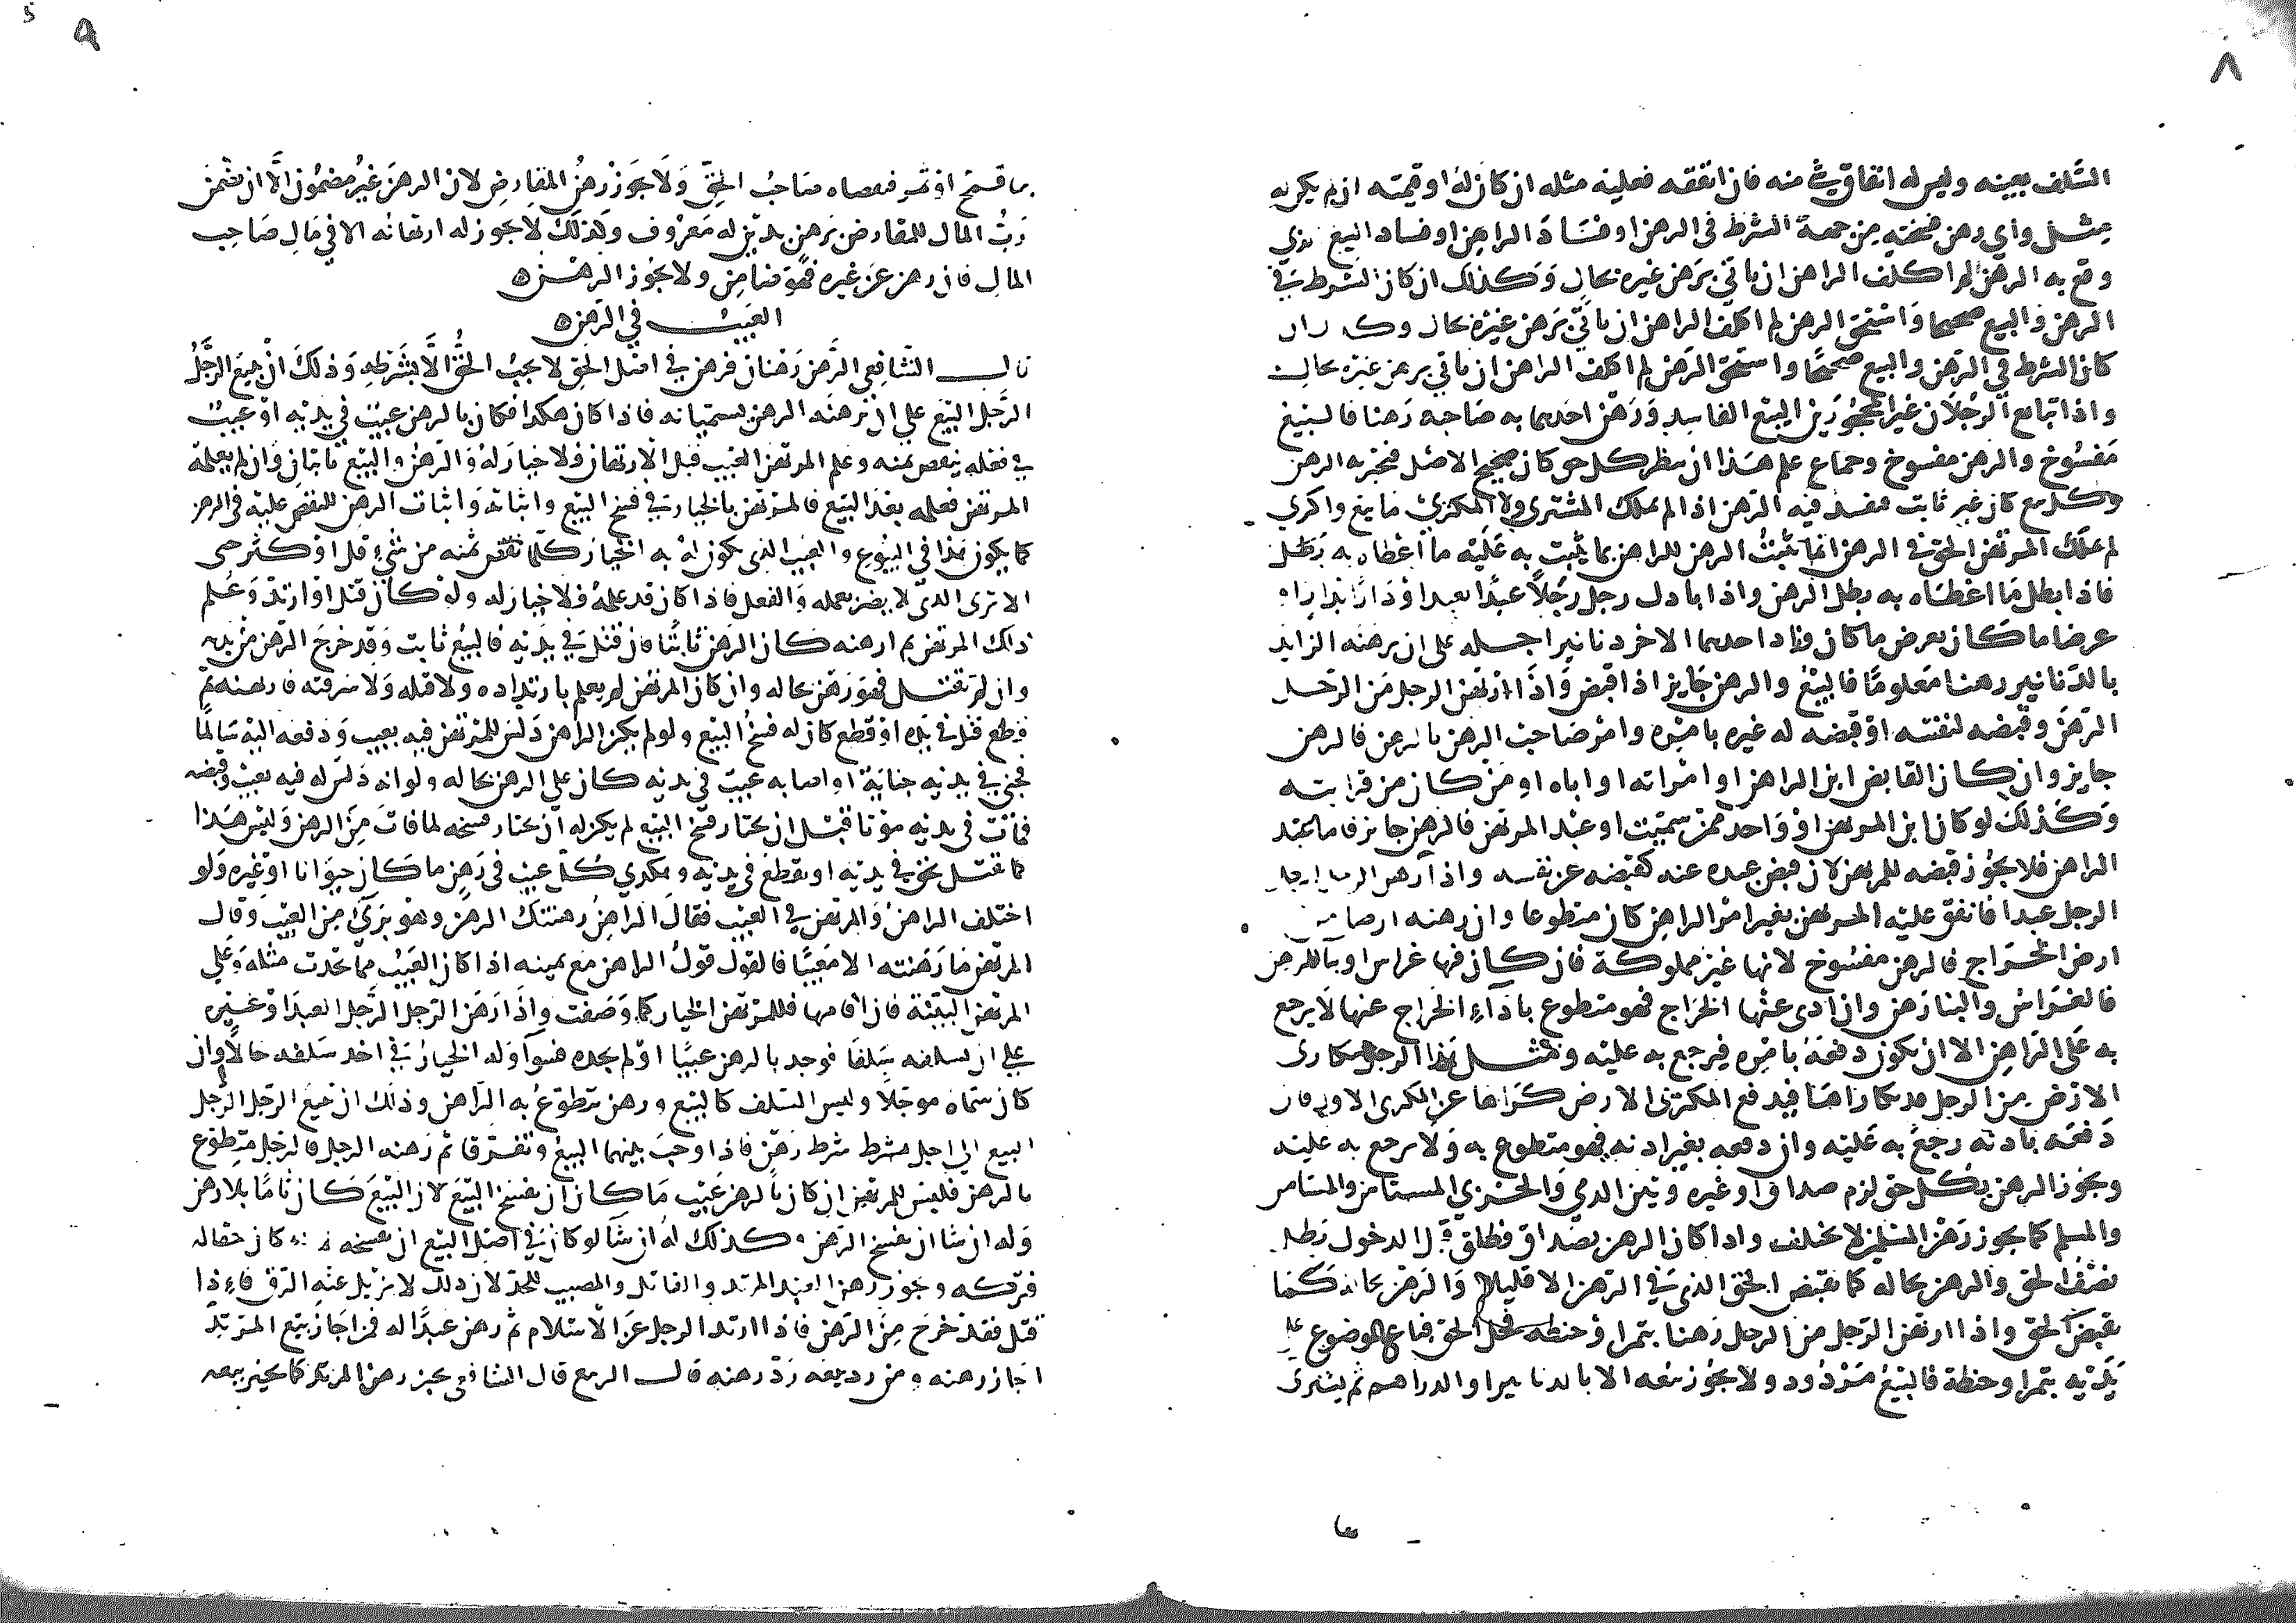 ٨
السلف بعينه وليس له انفاق شي منه فان انفقه فعليه مثله ان كان له او قيمته ان لم يكن له
مثل واي رهن فسخته من جهة الشرط في الرهن او فساد الراهن او فساد البيع الذي
وقع به الرهن لم اكلف الراهن ان ياتي برهن غيره بحال وكذلك ان كان الشرط في
الرهن والبيع صحيحا واستحق الرهن لم اكلف الراهن ان ياتي برهن غيره بحال
كان الشرط في الرهن والبيع صحيحا واستحق الرهن لم اكلف الراهن ان ياتي برهن غيره بحال
واذا تبايع الرجلان غير المحجورين البيع الفاسد ورهن احدهما به صاحبه رهنا فالبيع
مفسوخ والرهن مفسوخ وجماع علم هذا ان ينظر كل حق كان صحيح الاصل فيجوز به الرهن
وكل بيع كان غير ثابت فيفسد فيه الرهن اذا لم يملك المشتري ولا المكتري ما بيع او اكري
لم يملك المرتهن الحق في الرهن انما يثبت الرهن للراهن بما يثبت به عليه ما اعطاه به بطل
فاذا بطل ما اعطاه به بطل الرهن واذا بادل رجل رجلا عبدا بعبد او دارا بدار او
عرضا ما كان بعرض ما كان وزاد احدهما الاخر دنانير اجلة على ان يرهنه الزايد
بالدنانير رهنا معلوما فالبيع والرهن جايز اذا قبض واذا ارتهن الرجل من الرجل
الرهن وقبضه لنفسه او قبضه له غيره بامره وامر صاحب الرهن بالرهن فالرهن
جايز وان كان القابض ابن الراهن او امراته او اباه او من كان من قرابته
وكذلك لو كان ابن المرتهن او واحد ممن سميت او عبد المرتهن فالرهن جايز فاما عبد
الراهن فلا يجوز قبضه للمرتهن لان قبض عبده عنه كقبضه عن نفسه واذا رهن الرجل
الرجل عبدا فانفق عليه المرتهن بغير امر الراهن كان متطوعا وان رهنه ارضا من
ارض الخراج فالرهن مفسوخ لانها غير مملوكة فان كان فيها غراس او بنا للراهن
فالغراس والبنا رهن وان ادى عنها الخراج فهو متطوع باداء الخراج عنها لا يرجع
به على الراهن الا ان يكون دفعه بامره فيرجع به عليه ومثل هذا الرجل يتكارى
الارض من الرجل قد تكاراها فيدفع المكتري الارض كراها عن المكري الاول فان
دفعه باذنه رجع به عليه وان دفعه بغير اذنه فهو متطوع به ولا يرجع به عليه
ويجوز الرهن بكل حق لزم صداق او غيره وبين الذمي والحربي المستامن والمستامن
والمسلم كما يجوز رهن المسلمين لا يختلف واذا كان الرهن بصداق فطلق قبل الدخول بطل
نصف الحق والرهن بحاله كما يقبض الحق الذي في الرهن الا قليلا والرهن بحاله كما
يقبض الحق واذا ارتهن الرجل من الرجل رهنا بتمر او حنطة فحل الحق فباع الموضوع على
يديه بتمر او حنطة فالبيع مردود ولا يجوز بيعه الا بالدنانير او الدراهم ثم يشترى
٩
بها قمح او تمر فيقضاه صاحب الحق ولا يجوز رهن المقارض لان الرهن غير مضمون الا ان يضمن
رب المال للمقارض برهن بدين له معروف وكذلك لا يجوز له ارتهانه الا في مال صاحب
المال فان رهن عن غيره فهو ضامن ولا يجوز الرهن
العيب في الرهن
قال الشافعي الرهن رهنان فرهن في اصل الحق لا يجب الحق الا بشرطه وذلك ان يبيع الرجل
الرجل البيع على ان يرهنه الرهن يسميانه فاذا كان هكذا فكان بالرهن عيب في بدنه او عيب
في فعله ينقص ثمنه وعلم المرتهن العيب قبل الارتهان فلا خيار له والرهن والبيع ثابتان وان لم يعلمه
المرتهن فعلمه بعد البيع فالمرتهن بالخيار في فسخ البيع واثباته واثبات الرهن للنقص عليه في الرهن
كما يكون هذا في البيوع والعيب الذي يكون له به الخيار كلما نقص ثمنه من شيء قل او كثر حتى
الاثر الذي لا يضر بعمله والفعل فاذا كان قد علمه فلا خيار له ولو كان قتل او ارتد وعلم
ذلك المرتهن ثم ارهنه كان الرهن ثابتا فان قتل في يديه فالبيع ثابت وقد خرج الرهن من يديه
وان لم يقتل فهو رهن بحاله وان كان المرتهن لم يعلم بارتداده ولا قتله ولا سرقته فارهنه ثم
قطع قتل في يده او قطع كان له فسخ البيع ولو لم يكن الراهن دلس للمرتهن فيه بعيب ودفعه اليه سالما
فجنى في يديه جناية او اصابه عيب في يديه كان على الرهن بحاله ولو انه دلس له فيه بعيب وقبضه
فمات في يديه موتا قبل ان يختار فسخ البيع لم يكن له ان يختار فسخه لما فات من الرهن وليس هذا
كما يقتل بحق في يديه او يقطع في يديه وهكذي كل عيب في رهن ما كان حيوانا او غيره ولو
اختلف الراهن والمرتهن في العيب فقال الراهن رهنتك الرهن وهو بريء من العيب وقال
المرتهن ما رهنته الا معيبا فالقول قول الراهن مع يمينه اذا كان العيب مما يحدث مثله وعلى
المرتهن البينة فان اقامها فللمرتهن الخيار كما وصفت واذا رهن الرجل الرجل العبد او غيره
على ان يسلفه سلفا فوجد بالرهن عيبا او لم يجده فسوآ وله الخيار في اخذ سلفه حالا وان
كان سماه موجلا وليس السلف كالبيع ورهن يتطوع به الراهن وذلك ان يبيع الرجل الرجل
البيع الى اجل بشرط شرط رهن فاذا وجب بينهما البيع وتفرقا ثم رهنه الرجل فالرجل متطوع
بالرهن فليس للمرتهن ان كان بالرهن عيب ما كان ان يفسخ البيع لان البيع كان تاما بلا رهن
وله ان شا ان يفسخ الرهن وكذلك له ان شا لو كان في اصل البيع ان يفسخه لانه كان حقا له
فتركه ويجوز رهن العبد المرتد والقاتل والمصيب للحد لان ذلك لا يزيل عنه الرق فاذا
قتل فقد خرج من الرهن فاذا ارتد الرجل عن الاسلام ثم رهن عبدا له فمن اجاز بيع المرتد
اجاز رهنه ومن رد بيعه رد رهنه قال الربيع قال الشافعي يجيز رهن المرتد كما يجيز بيعه